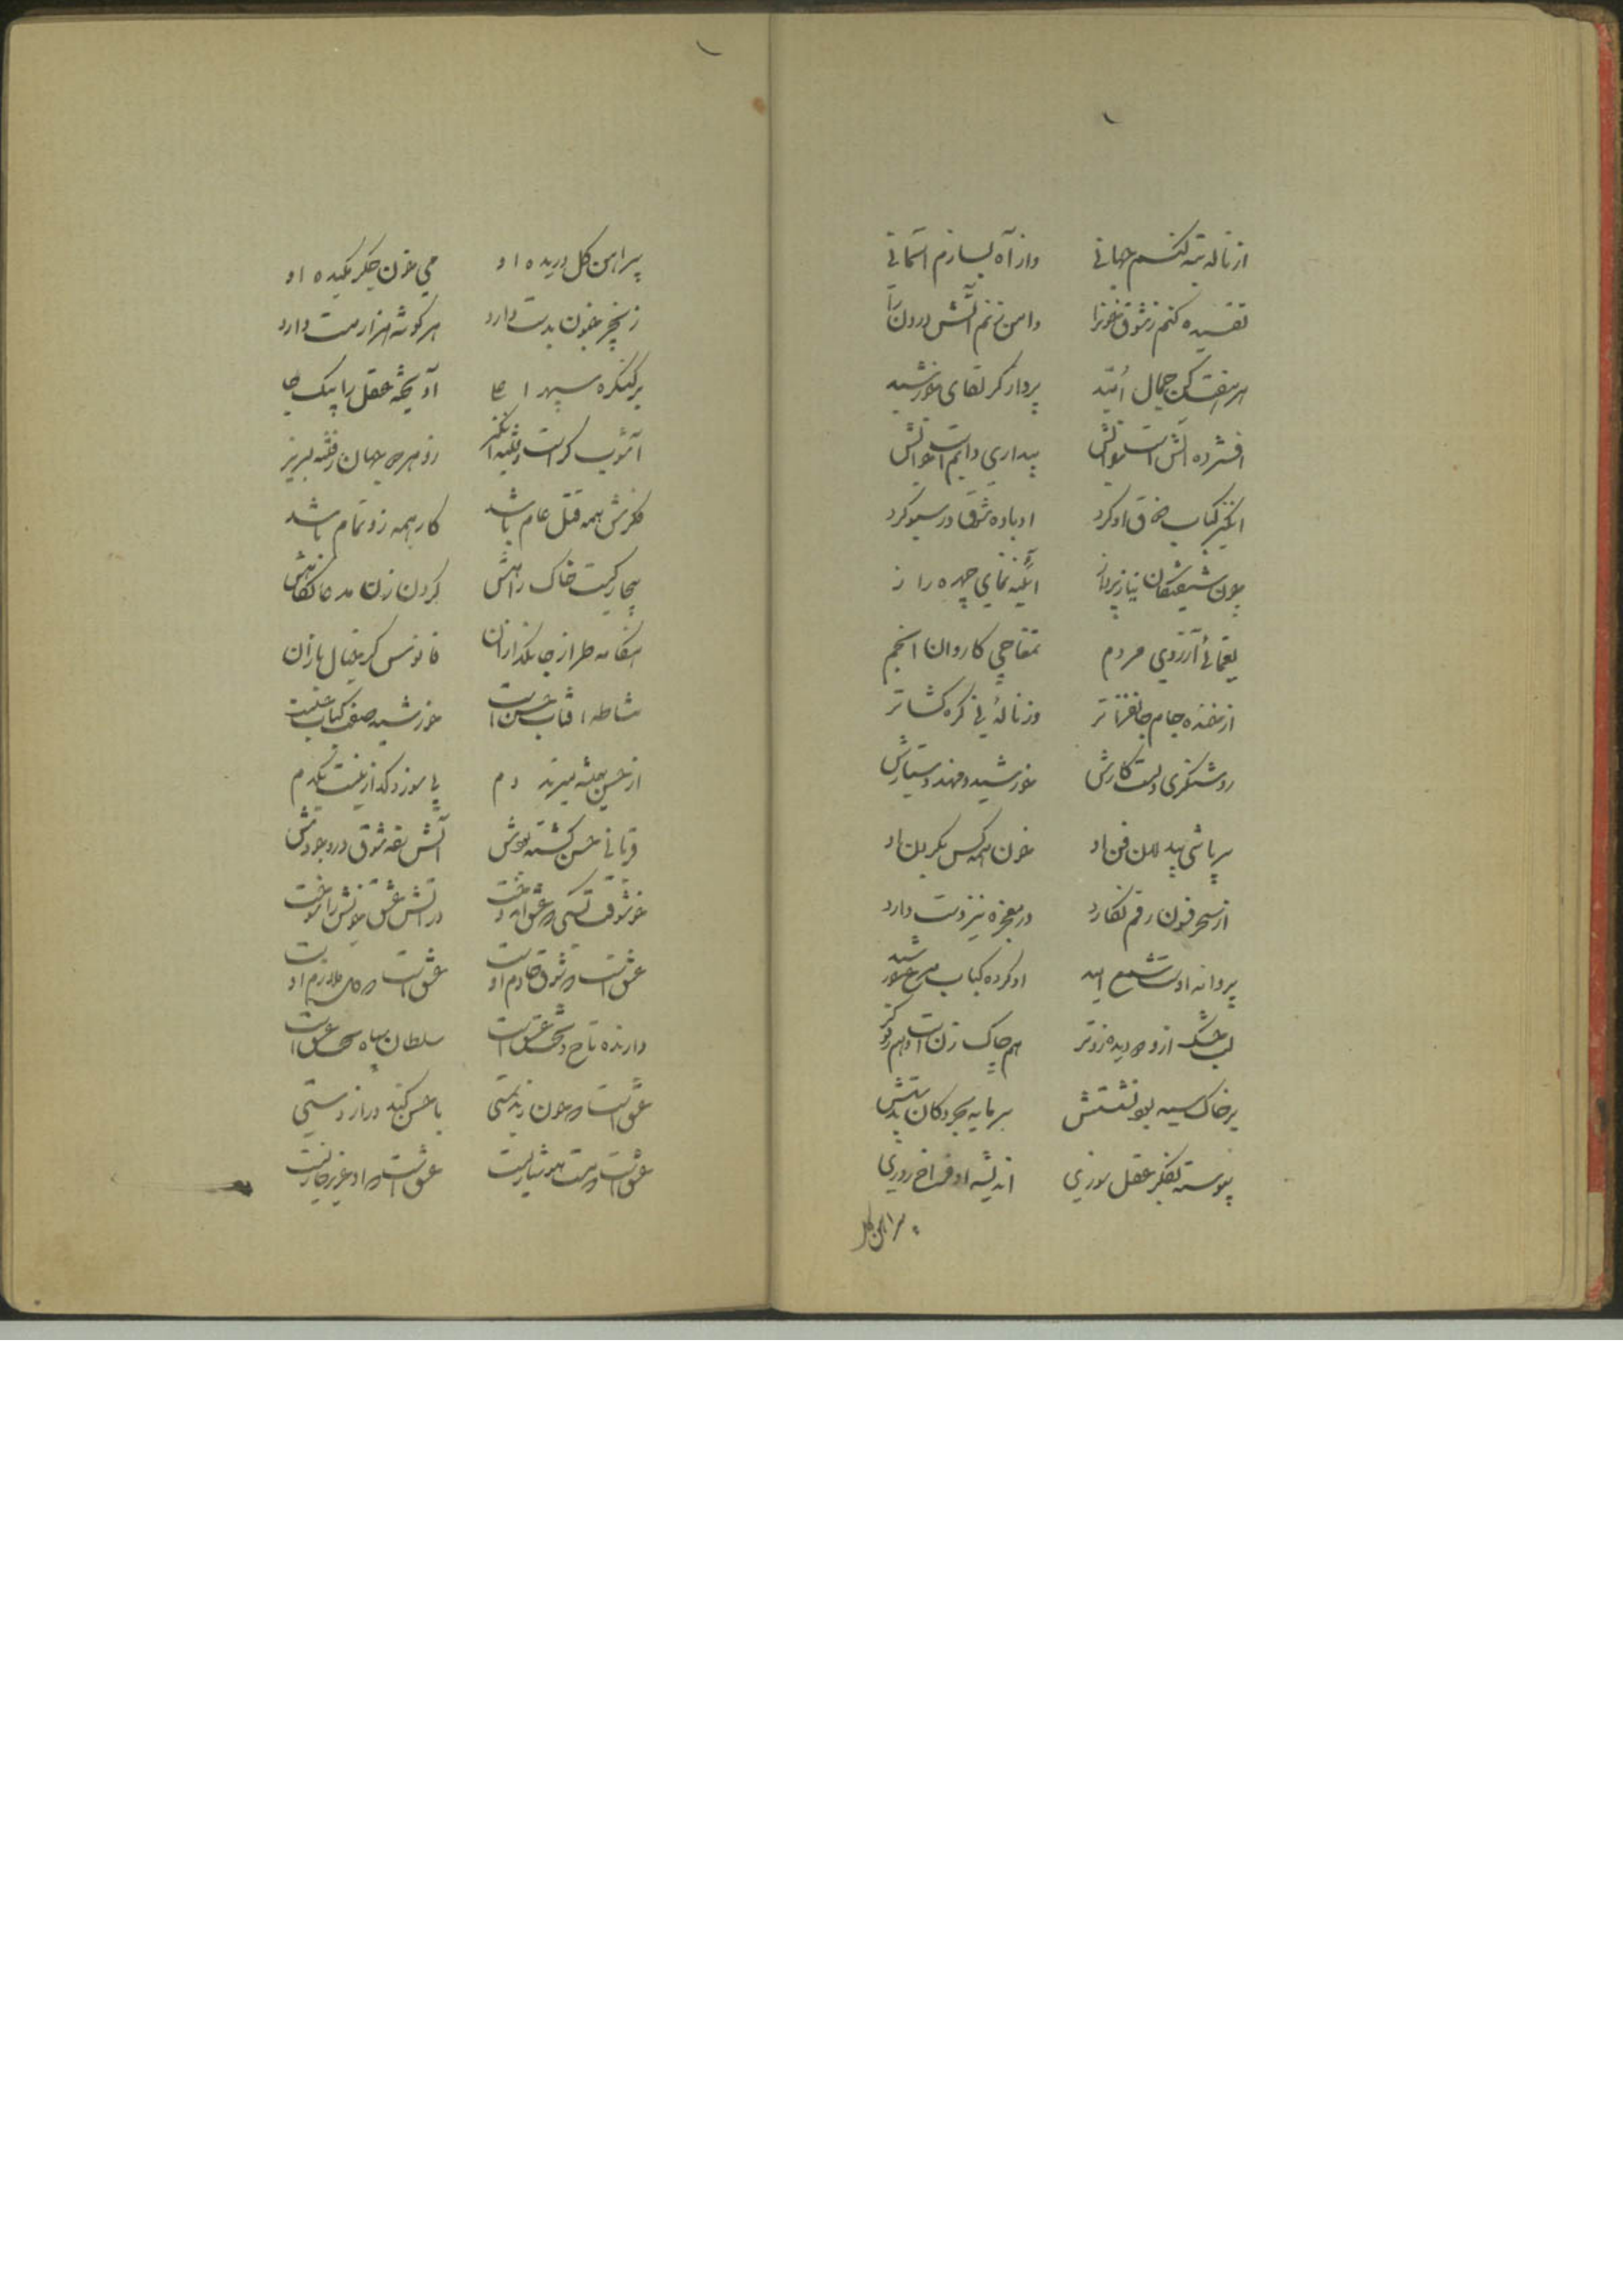 از ناله ته کنم جهانی وز آه بسازم آسمانی
تفسیده کنم ز شوق خونرا دامن زنم آتش درون را
هر هفت کن جمال امید پرداز گر لقای خورشید
افسرده آتش است آبش بیداری دایم است خوابش
انگیز کباب او کرد او باده شوق در سبو کرد
چون شیفتگان نیاز پرداز آئینه نمای چهره راز
یغمائی آرزوی مردم تمغاچی کاروان انجم
از خنده جام جانفزا تر وز ناله نی گره کشا تر
روشنگری است کارش خورشید و مه دستیارش
سرپاشی بیدلان فن او خون همه کس بگردن او
از سحر فنون رقم نگارد در معجزه نیز دست دارد
پروانه اوست شمع امید او کرده کباب مرغ خورشید
لب خشک ازو و دیده زو تر هم چاک زن است و هم رفوگر
بر خاک سیه بود نشستش سرمایه بحر و کان بدستش
پیوسته بفکر عقل سوزی اندیشه او فراخ روزی
پیراهن گل
پیراهن گل دریده او می خون جگر مکیده او
زنجیر جنون بدست دارد هر گوشه هزار مست دارد
بر کنگره سپهر اعلا آویخته عقل را بیک پا
آشوب گر است و فتنه انگیز زو هر دو جهان ز فتنه لبریز
فکرش همه قتل عام باشد کار همه زو تمام باشد
بیچارگیست خاک راهش گردن زن مدعا نگاهش
هنگامه طراز جانگدازان فانوس گر خیال بازان
مشاطه آفتاب حسن است خورشید صف کتاب حسن است
از حسن همیشه میزند دم بی سوز و گداز نیست یکدم
قربانی حسن گشته بودش آتش زده شوق در وجودش
خوشوقت کسی که عشق اندوخت در آتش عشق خویش را سوخت
عشق است و شوق خادم اوست عشق است و ملازم اوست
دارنده تاج و تخت عشق است سلطان سیاه بخت عشق است
عشق است و جنون بدمستی با حسن کند دراز دستی
عشق است و مست هوشیاریست عشق است و او عزیز خواریست